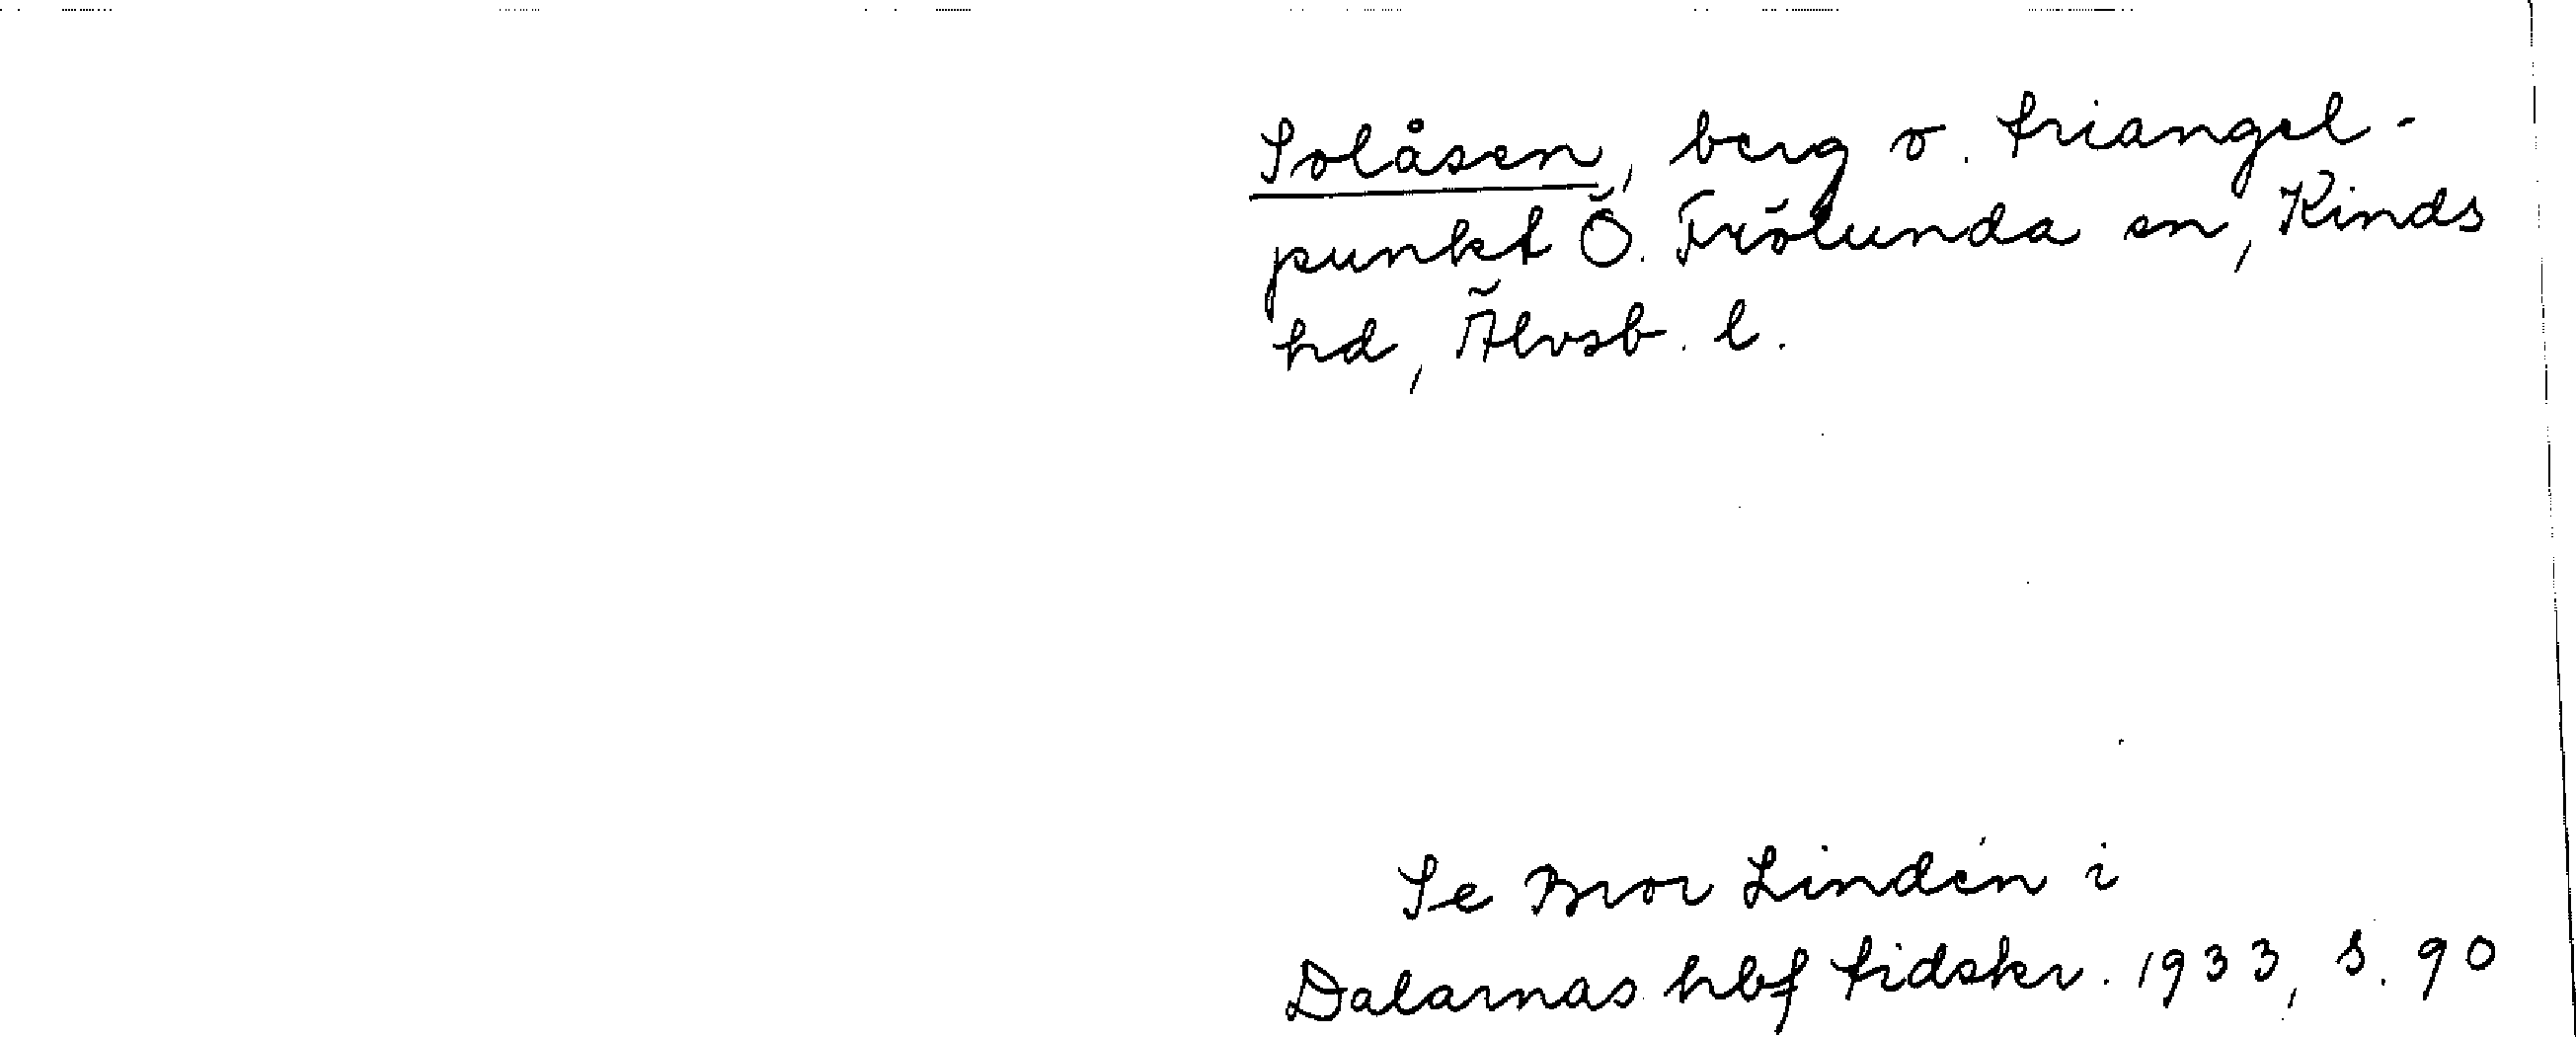 Solåsen, berg o. triangel-
punkt Ö. Frölunda sn, Kinds
hd, Älvsb. l.
Se Bror Lindén i
Dalarnas hbf tidskr. 1933, s. 90